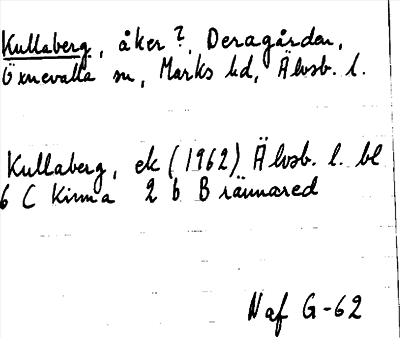 Kullaberg, åker?, Deragården,
Öxnevalla sn, Marks hd, Älvsb. l.
Kullaberg, ek (1962) Älvsb. l. bl
6 C Kinna 2 b Brännared
Naf G-62